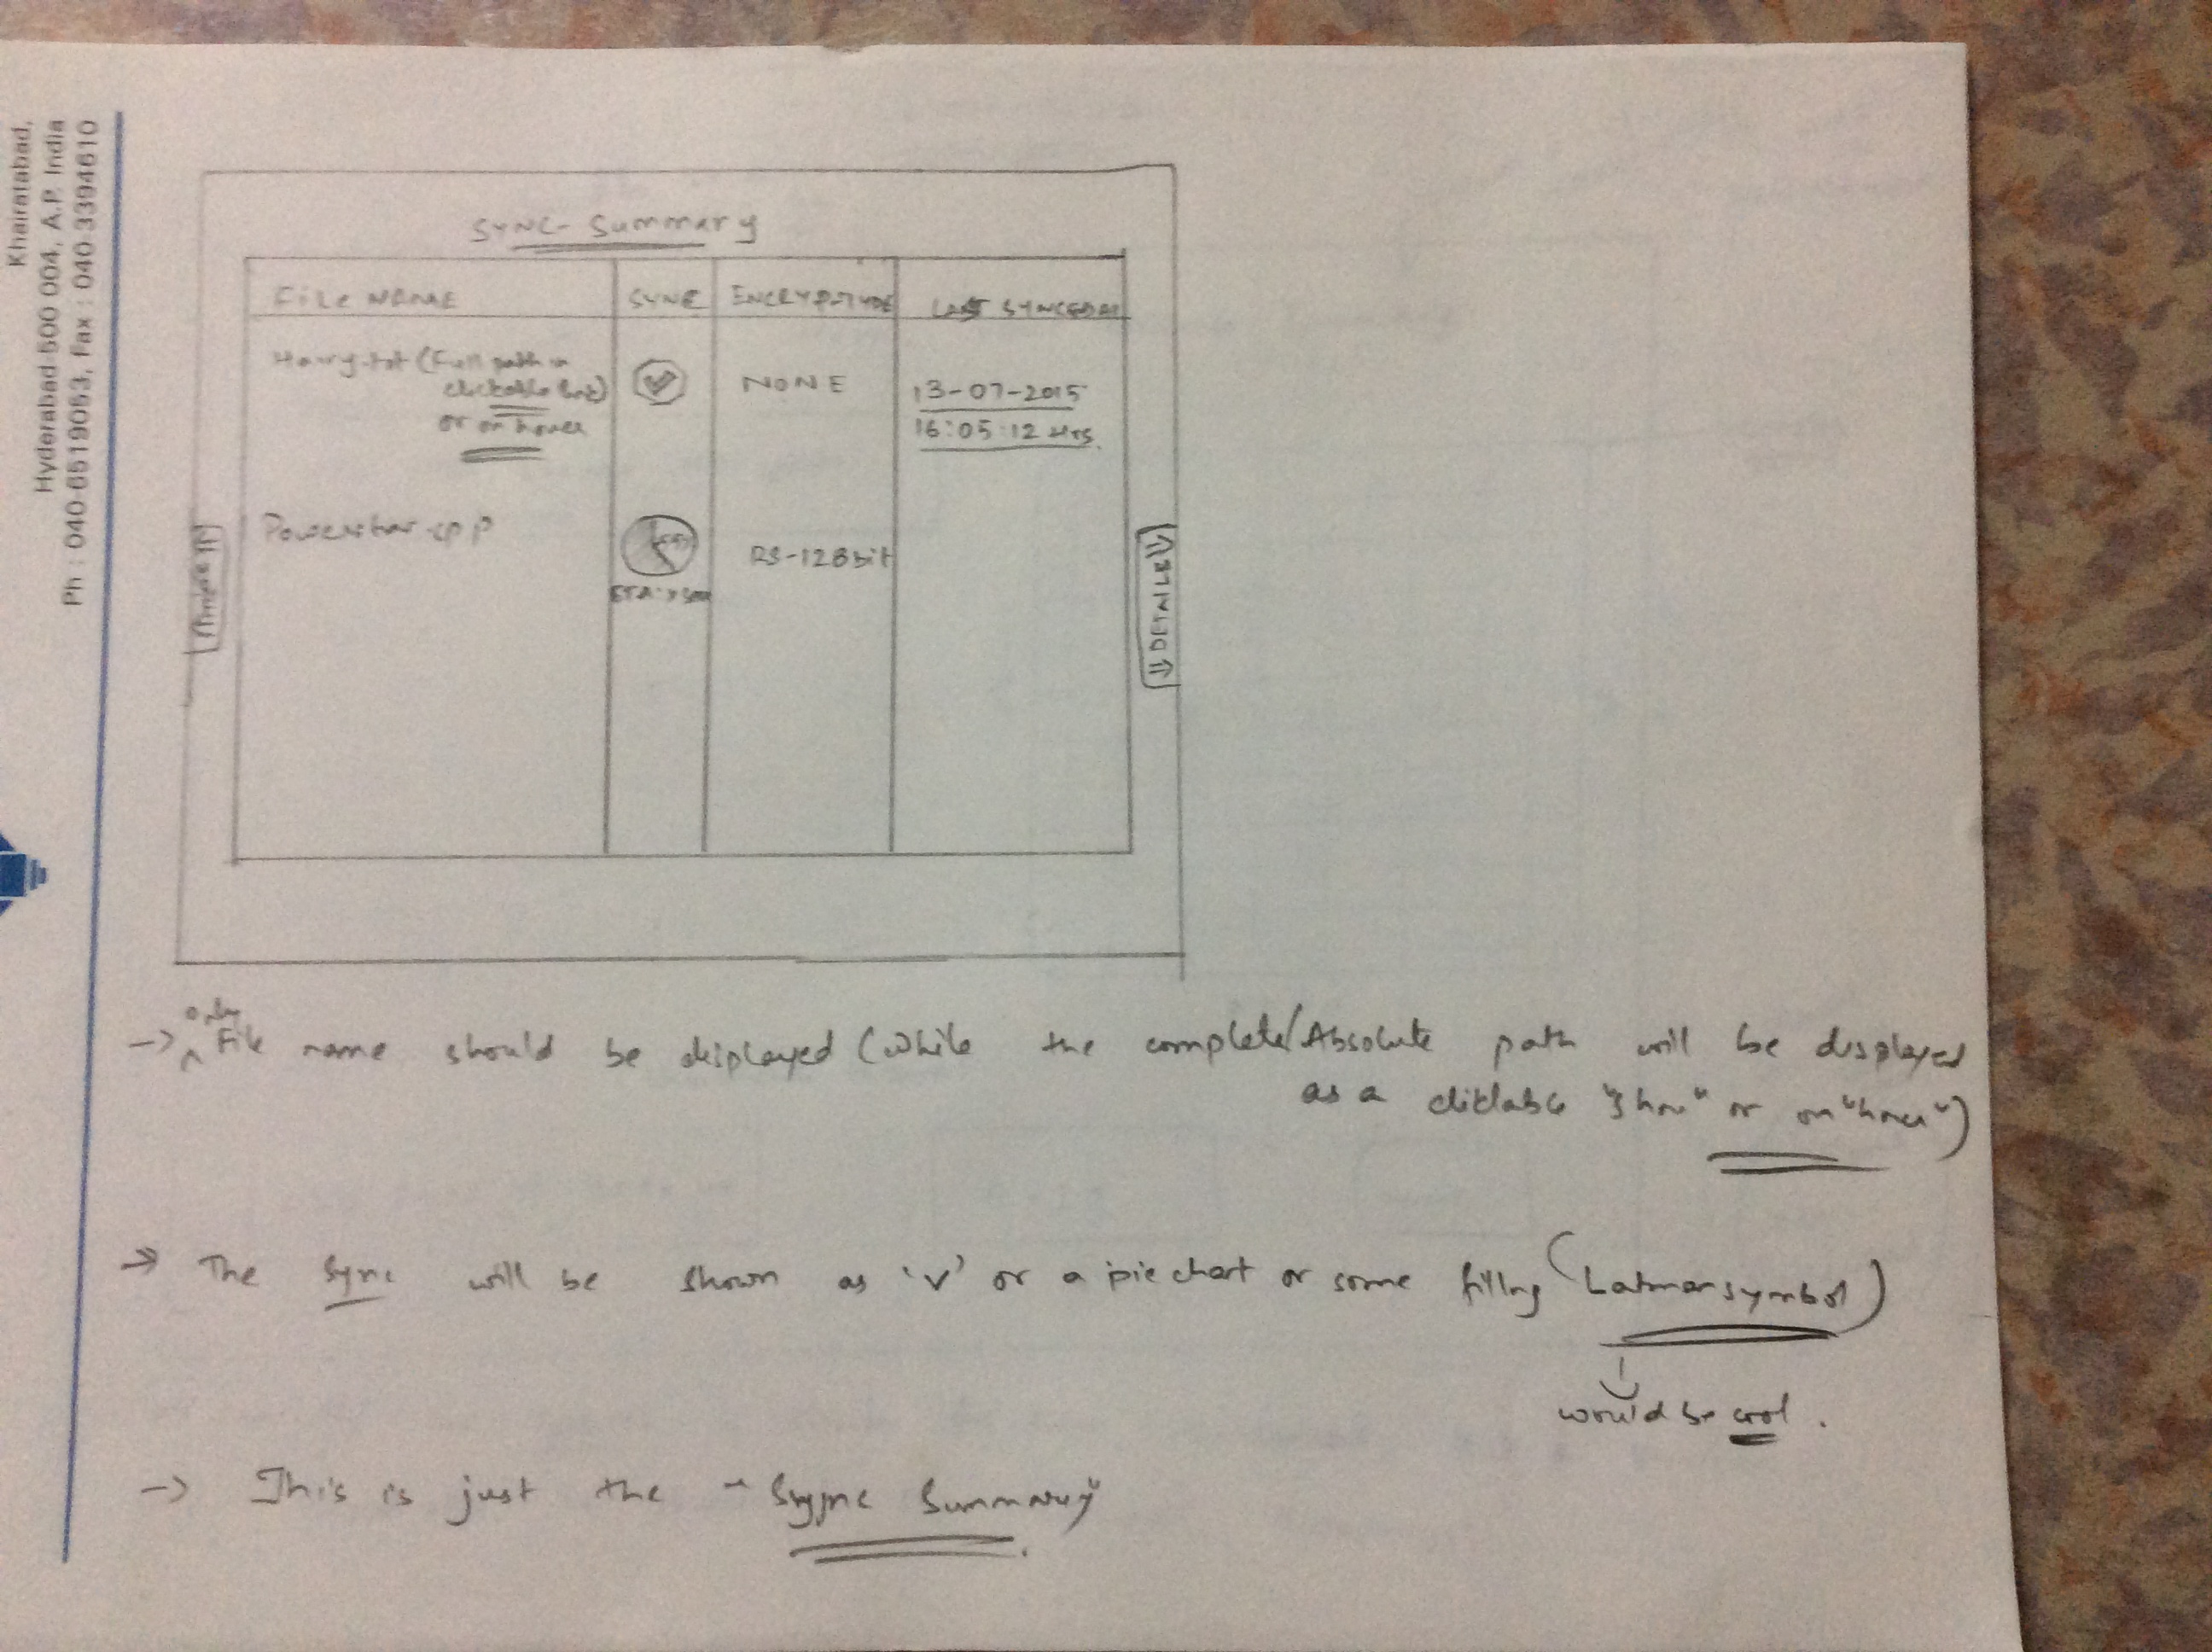 Khairatabad,
Hyderabad-500 004, A.P. India
Ph : 040-65519053, Fax : 040-3394610
SYNC- Summary
FILE NAME SYNC ENCRYP.TYPE LAST SYNCED AT
(Full path in
clickable link)
or on hover
NONE
13-07-2015
16:05:12 Hrs.
Powerstar.cpp
RS-128bit
ETA:
⇓ DETAILS ⇓
→ only File name should be displayed (While the complete/Absolute path will be displayed
as a clickable "show" or on "hover")
→ The Sync will be shown as 'v' or a pie chart or some filling (batman symbol)
would be cool.
→ This is just the "Sync Summary"